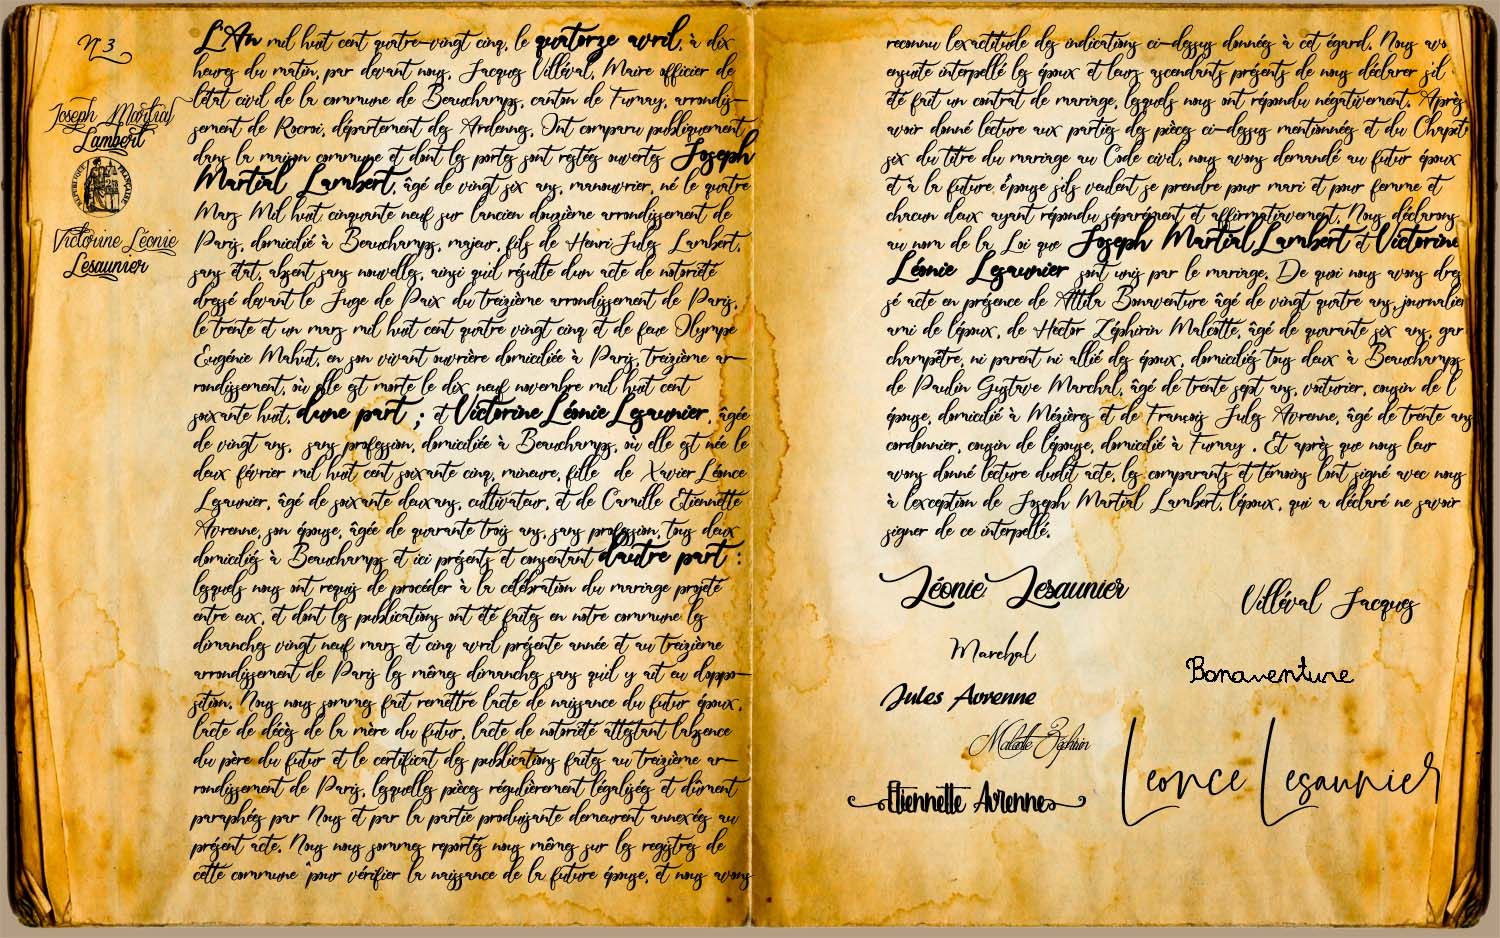 N 3
Joseph Martial
Lambert
RÉPUBLIQUE FRANÇAISE
Victorine Léonie
Lesaunier
L'An mil huit cent quatre-vingt cinq, le quatorze avril, à dix
heures du matin, par devant nous, Jacques Villéval, Maire officier de
l'état civil de la commune de Beauchamps, canton de Fumay, arrondis-
sement de Rocroi, département des Ardennes, Ont comparu publiquement
dans la maison commune et dont les portes sont restées ouvertes Joseph
Martial Lambert, âgé de vingt six ans, manouvrier, né le quatre
Mars Mil huit cinquante neuf sur l'ancien douzième arrondissement de
Paris, domicilié à Beauchamps, majeur, fils de Henri Jules Lambert,
sans état, absent sans nouvelles, ainsi qu'il résulte d'un acte de notoriété
dressé devant le Juge de Paix du treizième arrondissement de Paris,
le trente et un mars mil huit cent quatre vingt cinq et de feue Olympe
Eugénie Mahut, en son vivant ouvrière domiciliée à Paris, treizième ar-
rondissement, où elle est morte le dix neuf novembre mil huit cent
soixante huit, d'une part ; et Victorine Léonie Lesaunier, âgée
de vingt ans, sans profession, domiciliée à Beauchamps, où elle est née le
deux février mil huit cent soixante cinq, mineure, fille de Xavier Léonce
Lesaunier, âgé de soixante deux ans, cultivateur, et de Camille Etiennette
Avrenne, son épouse, âgée de quarante trois ans, sans profession, tous deux
domiciliés à Beauchamps et ici présents et consentant d'autre part :
lesquels nous ont requis de procéder à la célébration du mariage projeté
entre eux, et dont les publications ont été faites en notre commune les
dimanches vingt neuf mars et cinq avril présente année et au treizième
arrondissement de Paris les mêmes dimanches sans qu'il y ait eu d'oppo-
sition. Nous nous sommes fait remettre l'acte de naissance du futur époux,
l'acte de décès de la mère du futur, l'acte de notoriété attestant l'absence
du père du futur et le certificat des publications faites au treizième ar-
rondissement de Paris, lesquelles pièces régulièrement légalisées et dûment
paraphées par Nous et par la partie produisante demeurent annexées au
présent acte. Nous nous sommes reportés nous mêmes sur les registres de
cette commune pour vérifier la naissance de la future épouse, et nous avons
reconnu l'exactitude des indications ci-dessus données à cet égard. Nous avo
ensuite interpellé les époux et leurs ascendants présents de nous déclarer s'il
été fait un contrat de mariage, lesquels nous ont répondu négativement. Après
avoir donné lecture aux parties des pièces ci-dessus mentionnées et du Chapit
six du titre du mariage au Code civil, nous avons demandé au futur époux
et à la future épouse s'ils veulent se prendre pour mari et pour femme et
chacun d'eux ayant répondu séparément et affirmativement, Nous déclarons
au nom de la Loi que Joseph Martial Lambert et Victorine
Léonie Lesaunier sont unis par le mariage. De quoi nous avons dres
sé acte en présence de Attila Bonaventure âgé de vingt quatre ans, journalier
ami de l'époux, de Hector Zéphirin Malcotte, âgé de quarante six ans, gar
champêtre, ni parent ni allié des époux, domiciliés tous deux à Beauchamps
de Paulin Gustave Marchal, âgé de trente sept ans, voiturier, cousin de l
épouse, domicilié à Mézières et de François Jules Avrenne, âgé de trente ans
cordonnier, cousin de l'épouse, domicilié à Fumay . Et après que nous leur
avons donné lecture dudit acte, les comparants et témoins l'ont signé avec nous
à l'exception de Joseph Martial Lambert, l'époux, qui a déclaré ne savoir
signer de ce interpellé.
Léonie Lesaunier
Villéval Jacques
Marchal
Bonaventure
Jules Avrenne
Malcotte Zéphirin
Leonce Lesaunier
Etiennette Avrenne